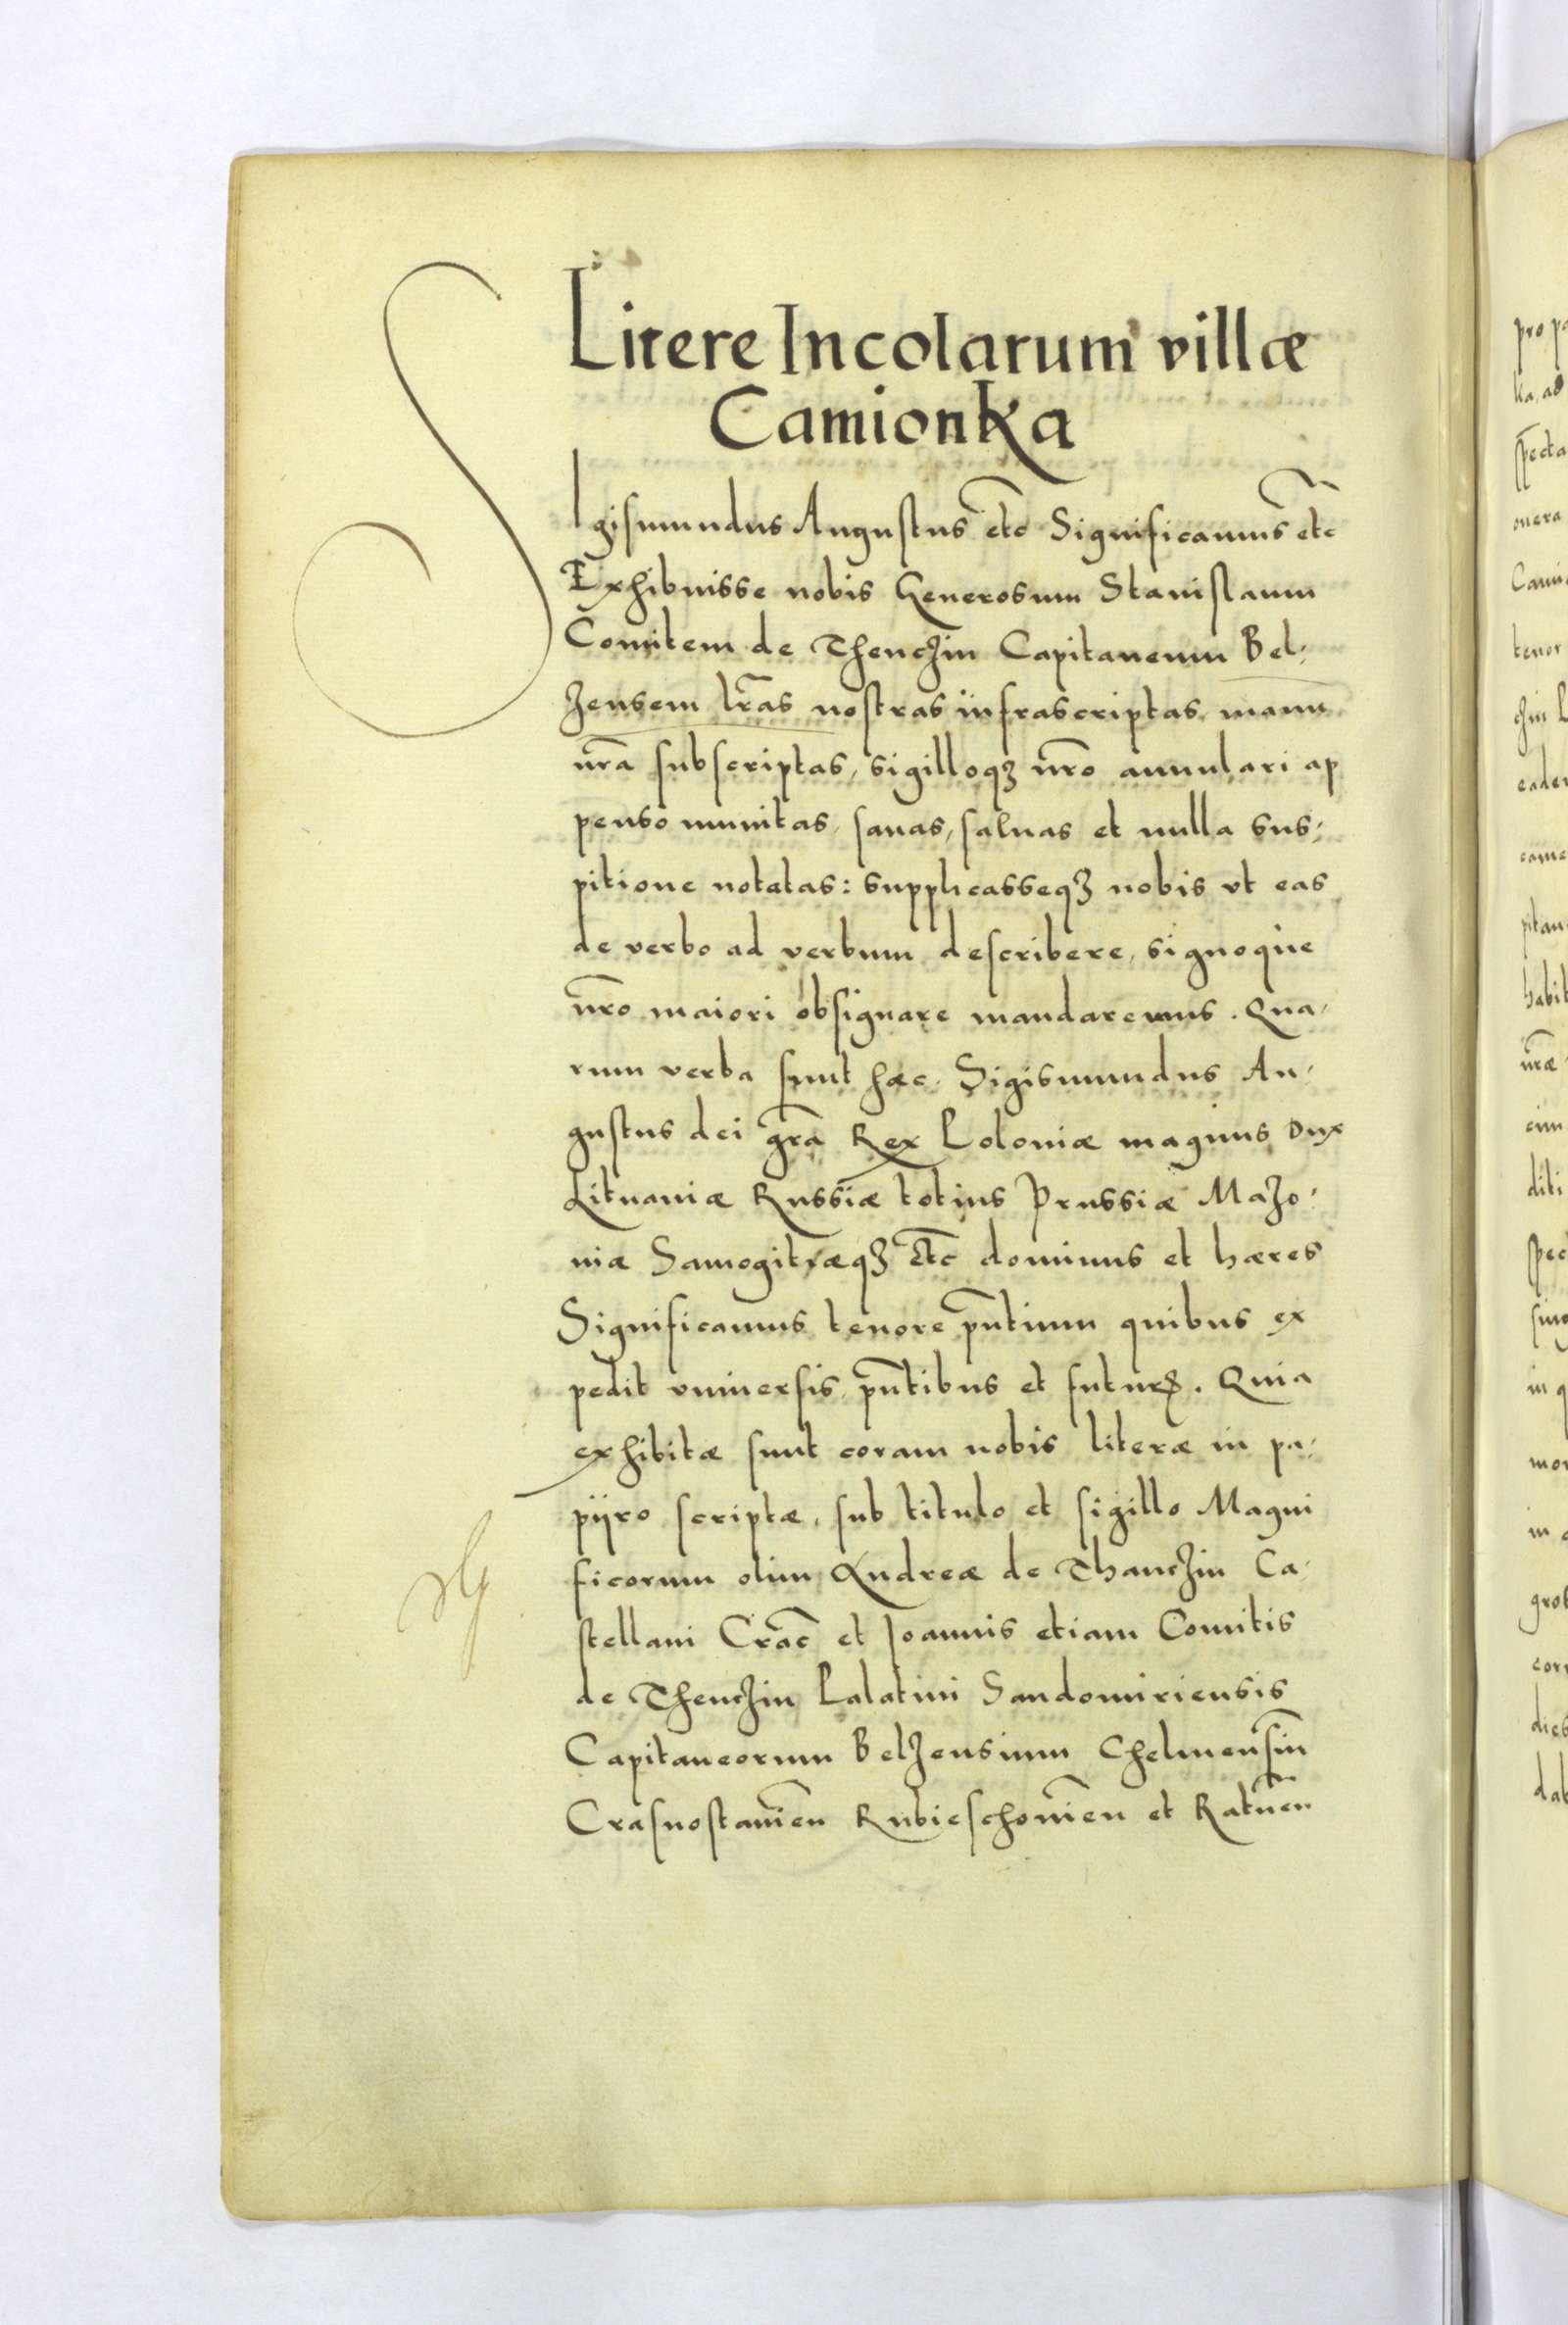 Litere Incolarum villæ
Camionka
SIgismundus Augustus etc Significamus etc
Exhibuisse nobis Generosum Stanislaum
Comitem de Thenczin Capitaneum Bel-
zensem lras nostras infrascriptas manu
nra subscriptas, sigilloqꝫ nro annulari ap
penso munitas, sanas, saluas et nulla sus-
pitione notatas: supplicasseqꝫ nobis vt eas
de verbo ad verbum describere, signoque
nro maiori obsignare mandaremus. Qua-
rum verba sunt hæc. Sigismundus Au-
gustus dei gra Rex Poloniæ magnus Dux
Lituaniæ Russiæ totius Prussiæ Mazo-
uiæ Samogitiæqꝫ etc dominus et hæres
Significamus tenore pntium quibus ex
pedit vniuersis pntibus et futurꝭ. Quia
exhibitæ sunt coram nobis literæ in pa-
pijro scriptæ, sub titulo et sigillo Magni
ficorum olim Andreæ de Thanczin Ca-
stellani Crac et Joannis etiam Comitis
de Thenczin Palatini Sandomiriensis
Capitaneorum Belzensium Chelmensiu
Crasnostauien Rubieschouien et Ratnen
pro p
lia, ad
specta
onera
Cami
tenor
eade
came
pitan
habit
nræ
diti
spec
in q
mor
grob
corr
dies
dab